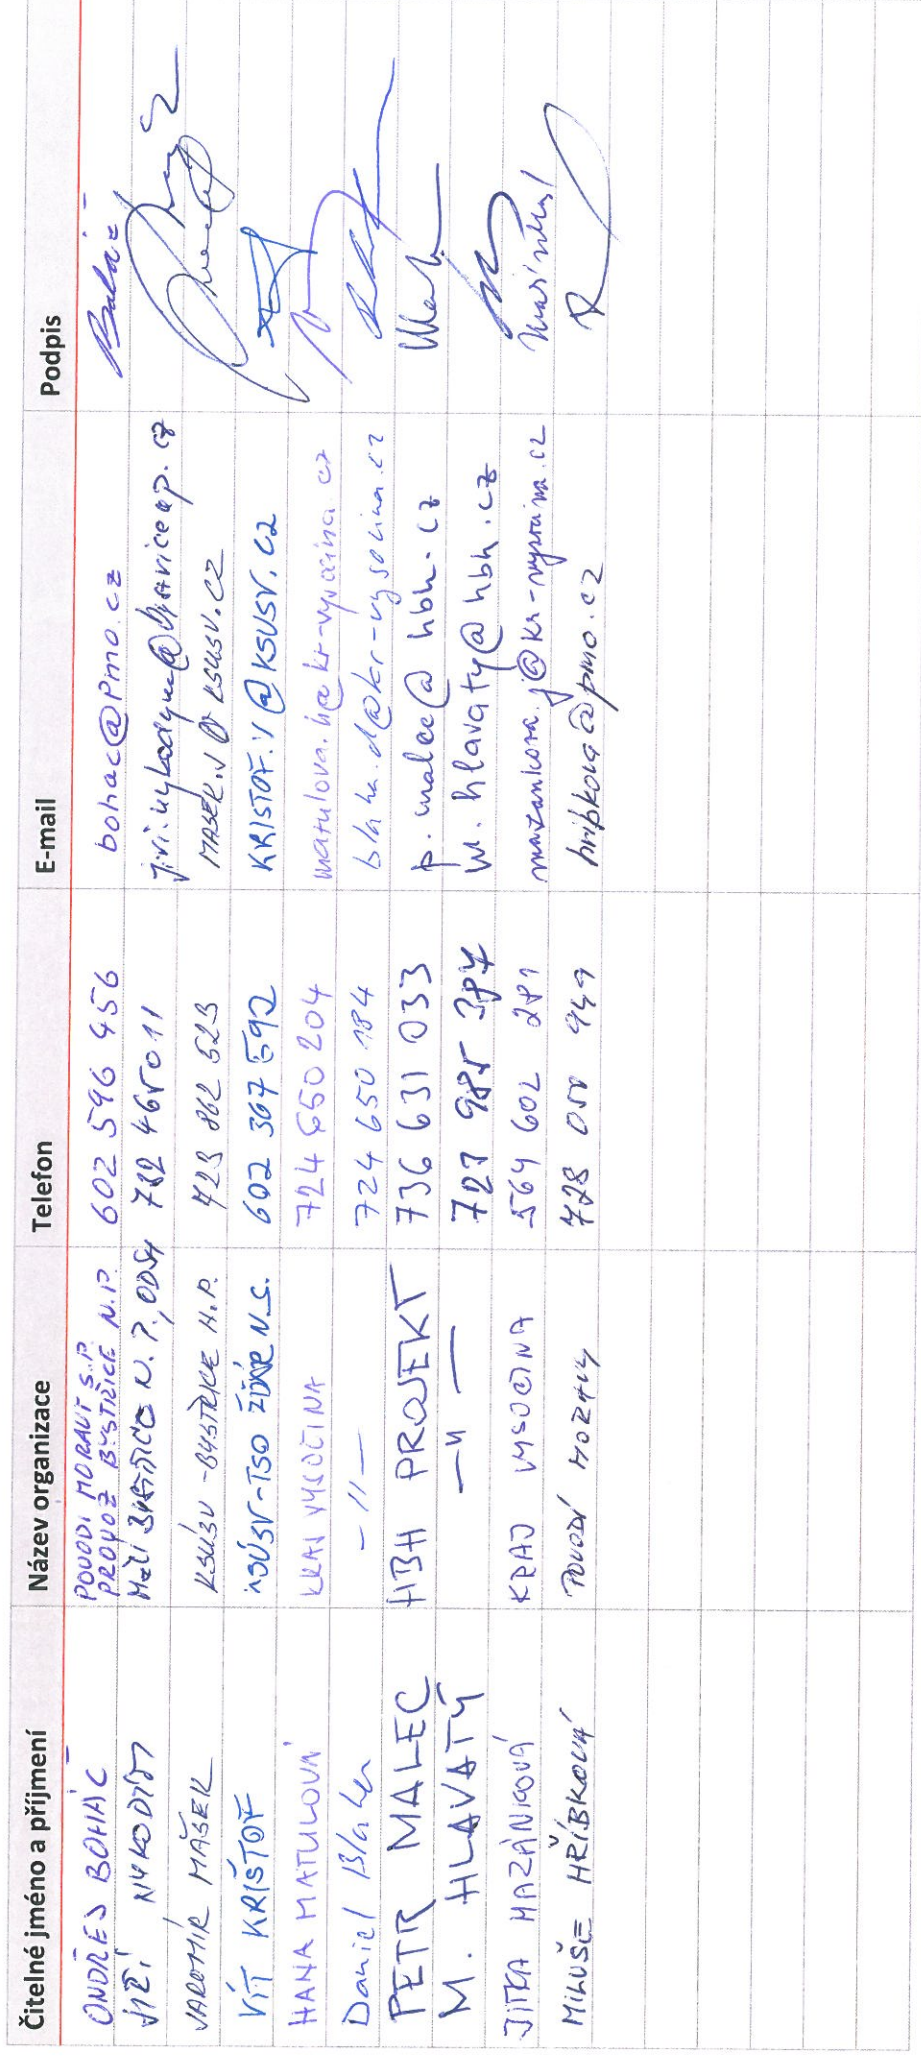 Čitelné jméno a příjmení Název organizace Telefon E-mail Podpis
ONDŘEJ BOHÁČ POVODÍ MORAVY S.P. PROVOZ BYSTŘICE N.P. 602 596 456 bohac@pmo.cz
JIŘÍ NYKODÝM N. P., ODSH 732 465 011
JAROMÍR MAŠEK KSÚSV - BYSTŘICE N.P. 723 862 523 MASEK.J@KSUSV.CZ
VÍT KRIŠTOF KSÚSV-TSO ŽĎÁR N.S. 602 367 592 KRISTOF.V@KSUSV.CZ
HANA MATULOVÁ KRAJ VYSOČINA 724 650 204 matulova.h@kr-vysocina.cz
Daniel Blaha - " - 724 650 184 blaha.d@kr-vysocina.cz
PETR MALEC HBH PROJEKT 736 631 033 p.malec@hbh.cz
M. HLAVATÝ - " - 727 985 387 m.hlavaty@hbh.cz
JITKA MAZÁNKOVÁ KRAJ VYSOČINA 564 602 281 mazankova.j@kr-vysocina.cz
MILUŠE HŘÍBKOVÁ POVODÍ MORAVY 728 050 949 hribkova@pmo.cz